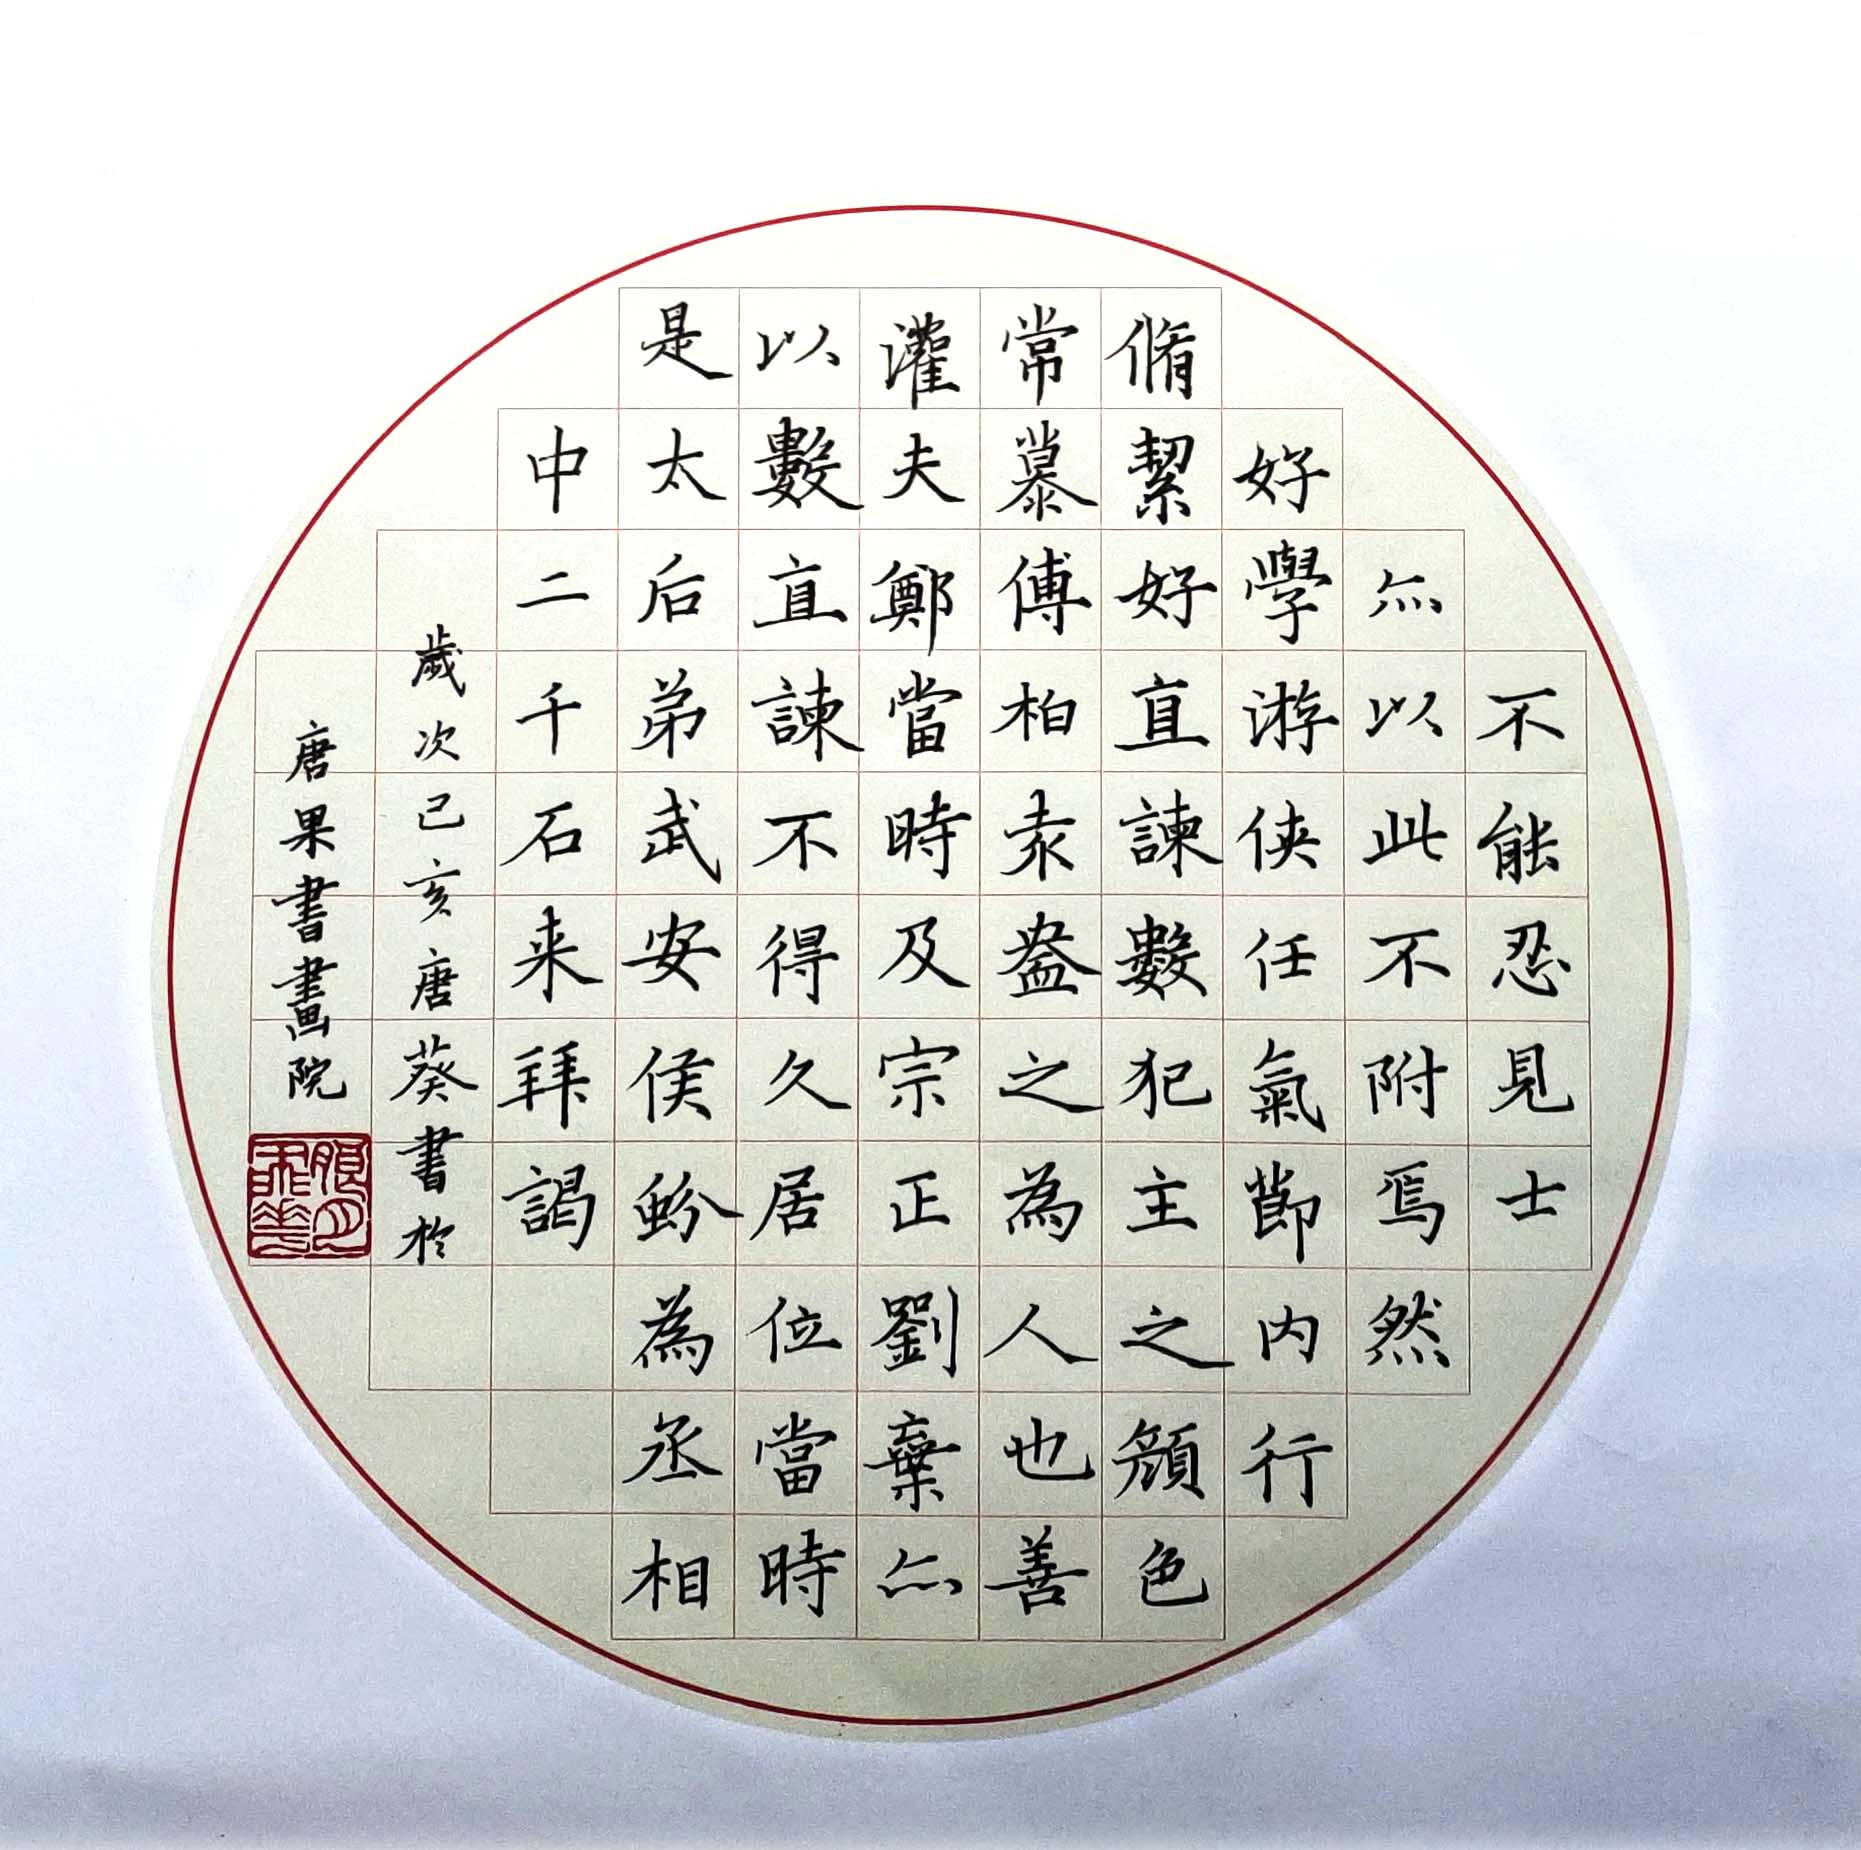 不能忍見士
亦以此不附焉然
好學游俠任氣節內行
脩絜好直諫數犯主之顏色
常慕傅柏袁盎之為人也善
灌夫鄭當時及宗正劉棄亦
以數直諫不得久居位當時
是太后弟武安侯蚡為丞相
中二千石来拜謁
歲次己亥唐葵書於
唐果書畫院